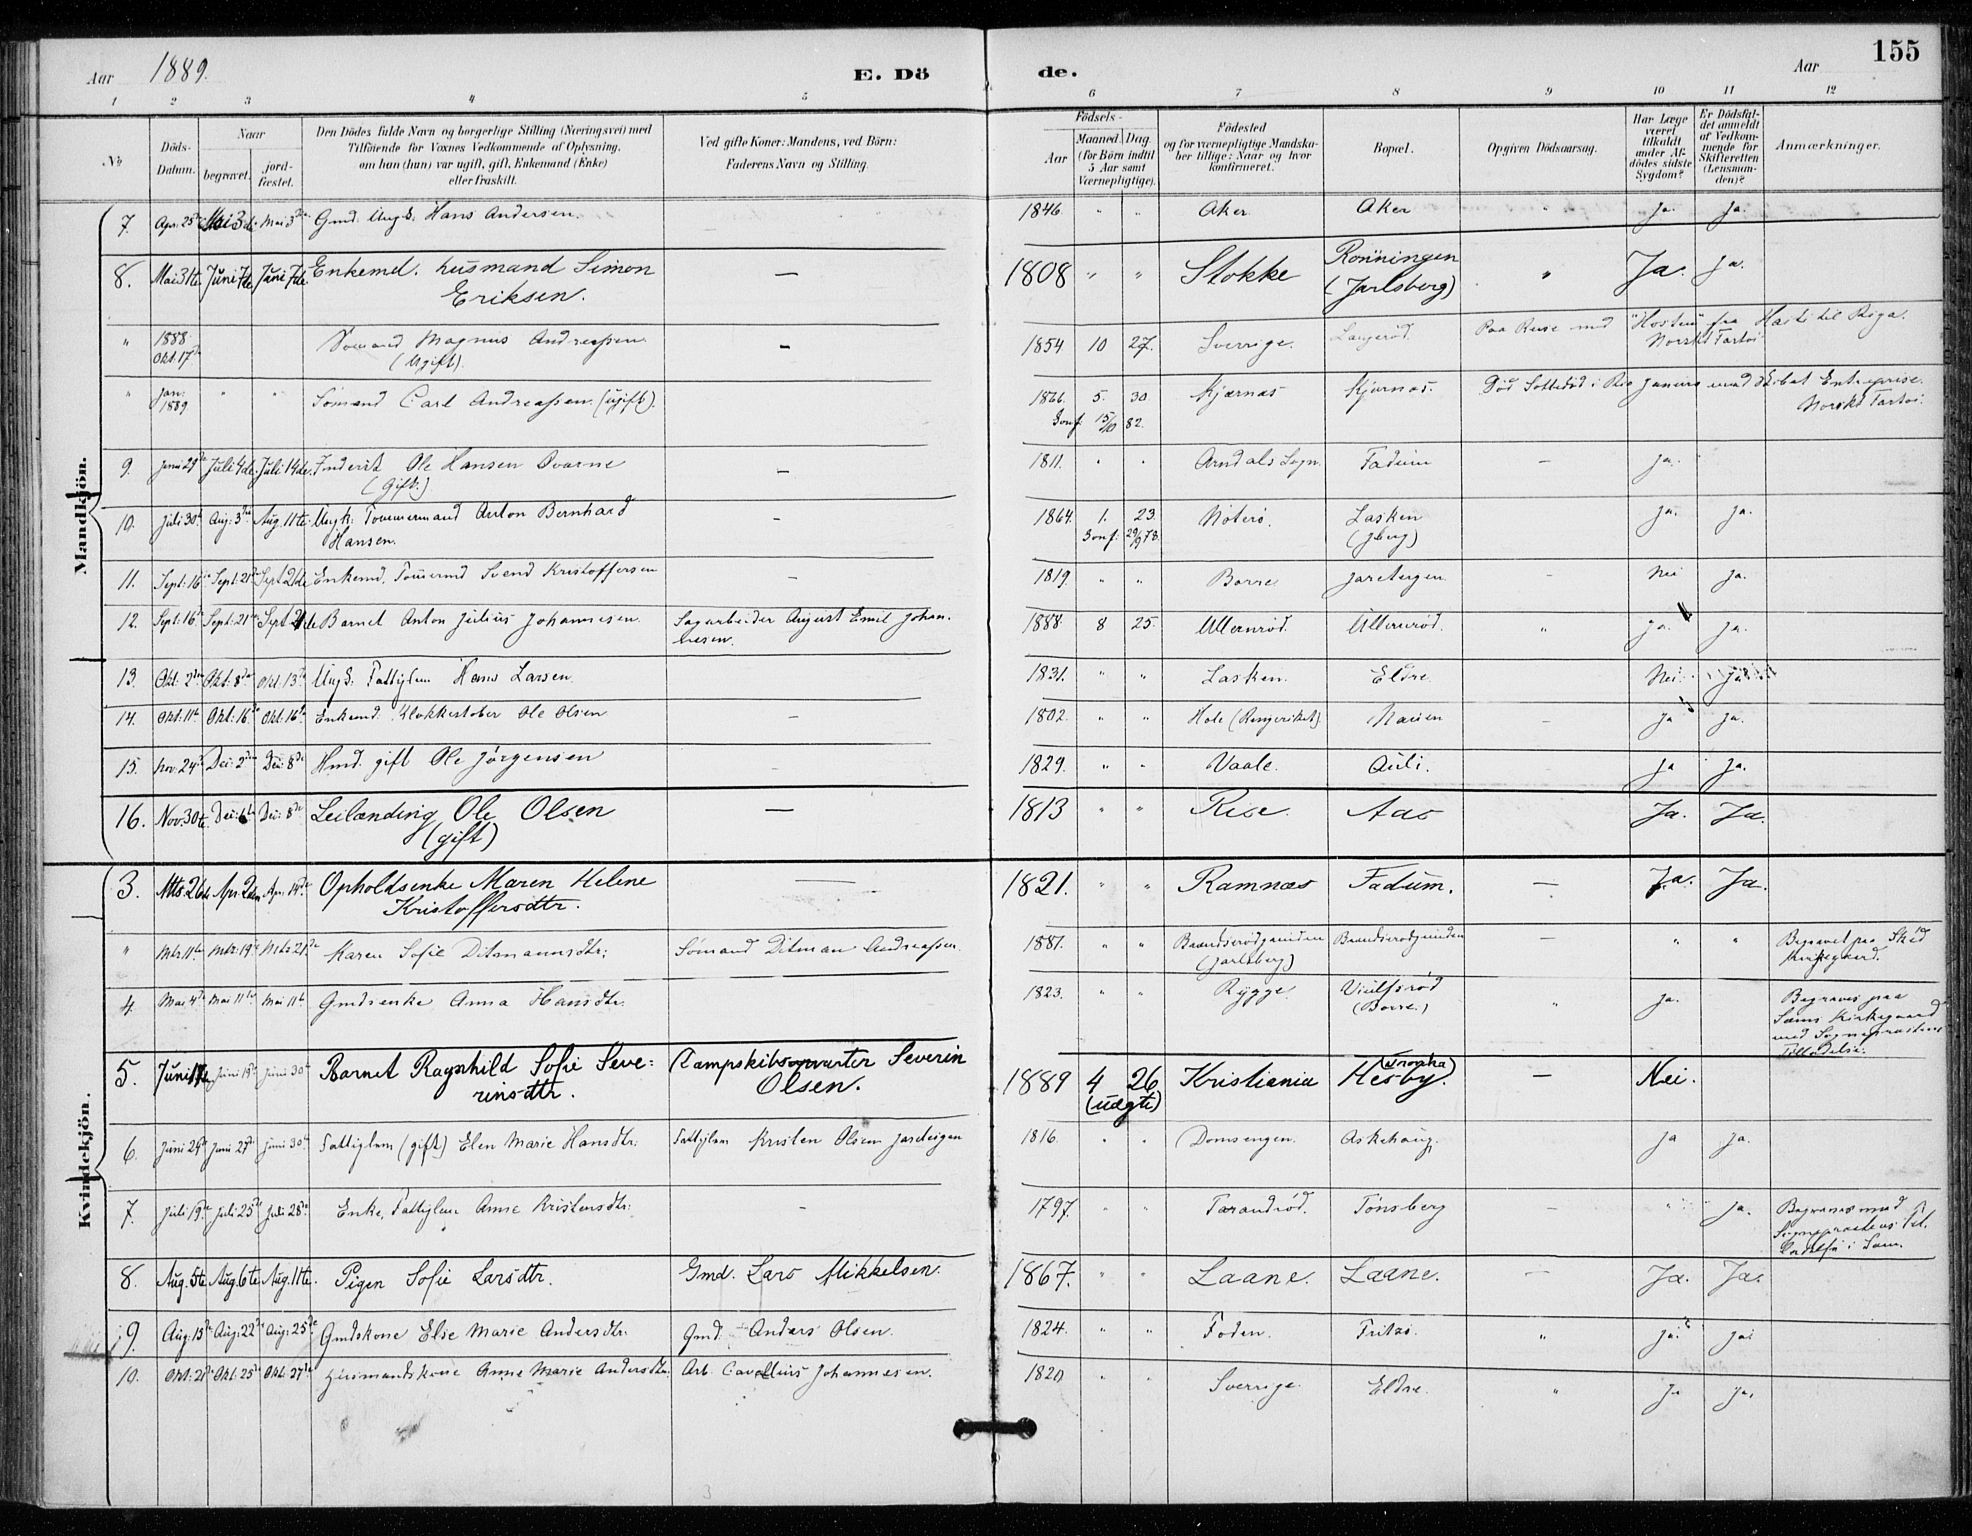 Aar 1889. E. Dö de. Aar 155
1 2 3 4 5 6 7 8 9 10 11 12
No Döds-Datum. Naar begravet. jord-fæstet. Den Dödes fulde Navn og borgerlige Stilling (Næringsvei) med Tilföiende for Voxnes Vedkommende af Oplysning, om han (hun) var ugift, gift, Enkemand (Enke) eller fraskilt. Ved gifte Koner: Mandens, ved Börn: Faderens Navn og Stilling. Födsels- Aar Maaned. Dag. (for Börn indtil 5 Aar samt Værnepligtige). Födested og for værnepligtige Mandskaber tillige: Naar og hvor konfirmeret. Bopæl. Opgiven Dödsaarsag. Har Læge været tilkaldt under Afdödes sidste Sygdom? Er Dödsfaldet anmeldt af Vedkommende for Skifteretten (Lensmanden)? Anmærkninger.
Mandkjön.
7. Apr. 25de Mai 3die Mai 3die Gmd. Ungk. Hans Andersen. 1846. " " Aker Aker " Ja. Ja.
8. Mai 31te Juni 7de Juni 7de Enkemd. husmand Simon Eriksen. — 1808 " " Stokke Rönningen (Jarlsberg) " Ja. Ja.
" 1888 Okt. 17de Sömand Magnus Andreassen (Ugift). — 1854 10 27. Sverrige. Langeröd. Paa Reise med fra Haiti til Riga. Norskt Fartöi
" Jan. 1889 " " Sömand Carl Andreassen. (ugift). 1866. 5. 30. Konf. 15/10 82. Kjærnæs Kjærnæs. Död i Rio Janeiro med Skibet Entreprise. Norskt Fartöi.
9. Juni 29de Juli 4de. Juli 14de. Inderst Ole Hansen (gift.) — 1811. " " Sogn. Fadum — Ja.
10. Juli 30te Aug. 3die Aug. 11te. Ungk. Tömmermand Anton Bernhard Hansen. — 1864. 1. 23. Konf. 29/9 78. Nöterö. Lasken (Jberg) Ja. Ja.
11. Sept. 16de Sept. 21de Sept. 26de Enkemd. Tömermd Svend Kristoffersen — 1819. " " Borre. Jareteigen. — Nei Ja.
12. Sept. 16de Sept. 21de Sept. 21de Barnet Anton Julius Johannesen. Sagarbeider August Emil Johannesen. 1888. 8 25. Ullernröd. Ullernröd. " Ja. Ja.
13. Okt. 2den Okt. 8de Okt. 13de Ungk. Fattiglem Hans Larsen. 1831. " " Lasken. Eldre. Nei. Ja.
14. Okt. 11te Okt. 16de Okt. 16de Enkemd. Klokkestöber Ole Olsen — 1802. " " Hole (Ringeriket) Nauen — Ja Ja.
15. Nov. 24de Dec. 2den Dec. 8de Hmd. gift Ole Jörgensen — 1829. " " Vaale. Auli. Ja Ja.
16. Nov. 30te Dec. 6te Dec. 8de Leilænding Ole Olsen (gift) — 1813 " " Rise. Aas Ja. Ja.
Kvindekjön.
3. Mts. 26de Apr. 2den Apr. 14de Opholdsenke Maren Helene Kristoffersdtr. — 1821. " " Ramnæs Fadum. — Ja. Ja.
" Mts. 11te Mts. 19de Mts. 21de Karen Sofie Ditmannsdtr: Sömand Ditman Andreassen. 1881. " " (Jarlsberg) — " " Begravet paa Skjö Kirkegaard.
4. Mai 4de Mai 11te Mai 11te Gmdsenke Anna Hansdtr. 1823. " " Rygge (Borre.) " Ja. Begraves paa Sæms Kirkegaard med Sognepræstens Tilladelse.
5. Juni 14de Juni 19de Juni 30te Barnet Ragnhild Sofie Severinsdtr. Dampskibsopvarter Severin Olsen. 1889 4 26 (uægte) Kristiania Hesby. — Nei.
6. Juni 24de Juni 27de Juni 30te Fattiglem (gift) Elen Marie Hansdtr: Fattiglem Kristen Olsen Jareteigen 1816. " " Domsengen. Askehaug. Ja Ja.
7. Juli 19de Juli 25de Juli 28de Enke, Fattiglem Anne Kristensdtr: — 1797. " " Tarandröd. Tönsberg " Ja. Begraves med Sognepræstens i Sæm.
8. Aug. 5te Aug. 6te Aug. 11te. Pigen Sofie Larsdtr. Gmd. Lars Mikkelsen. 1867. " " Laane. Laane. — Ja. Ja.
9. Aug. 15de Aug. 22de Aug. 25de Gmdskone Else Marie Andersdtr. Gmd. Anders Olsen. 1824. " " Foden. Fritsö. " Ja. Ja.
10. Okt. 21de Okt. 25de Okt. 27de Husmandskone Anne Marie Andersdtr. Arb. Cavallius Johannesen. 1820 " " Sverrige. Eldre. " Ja Ja.